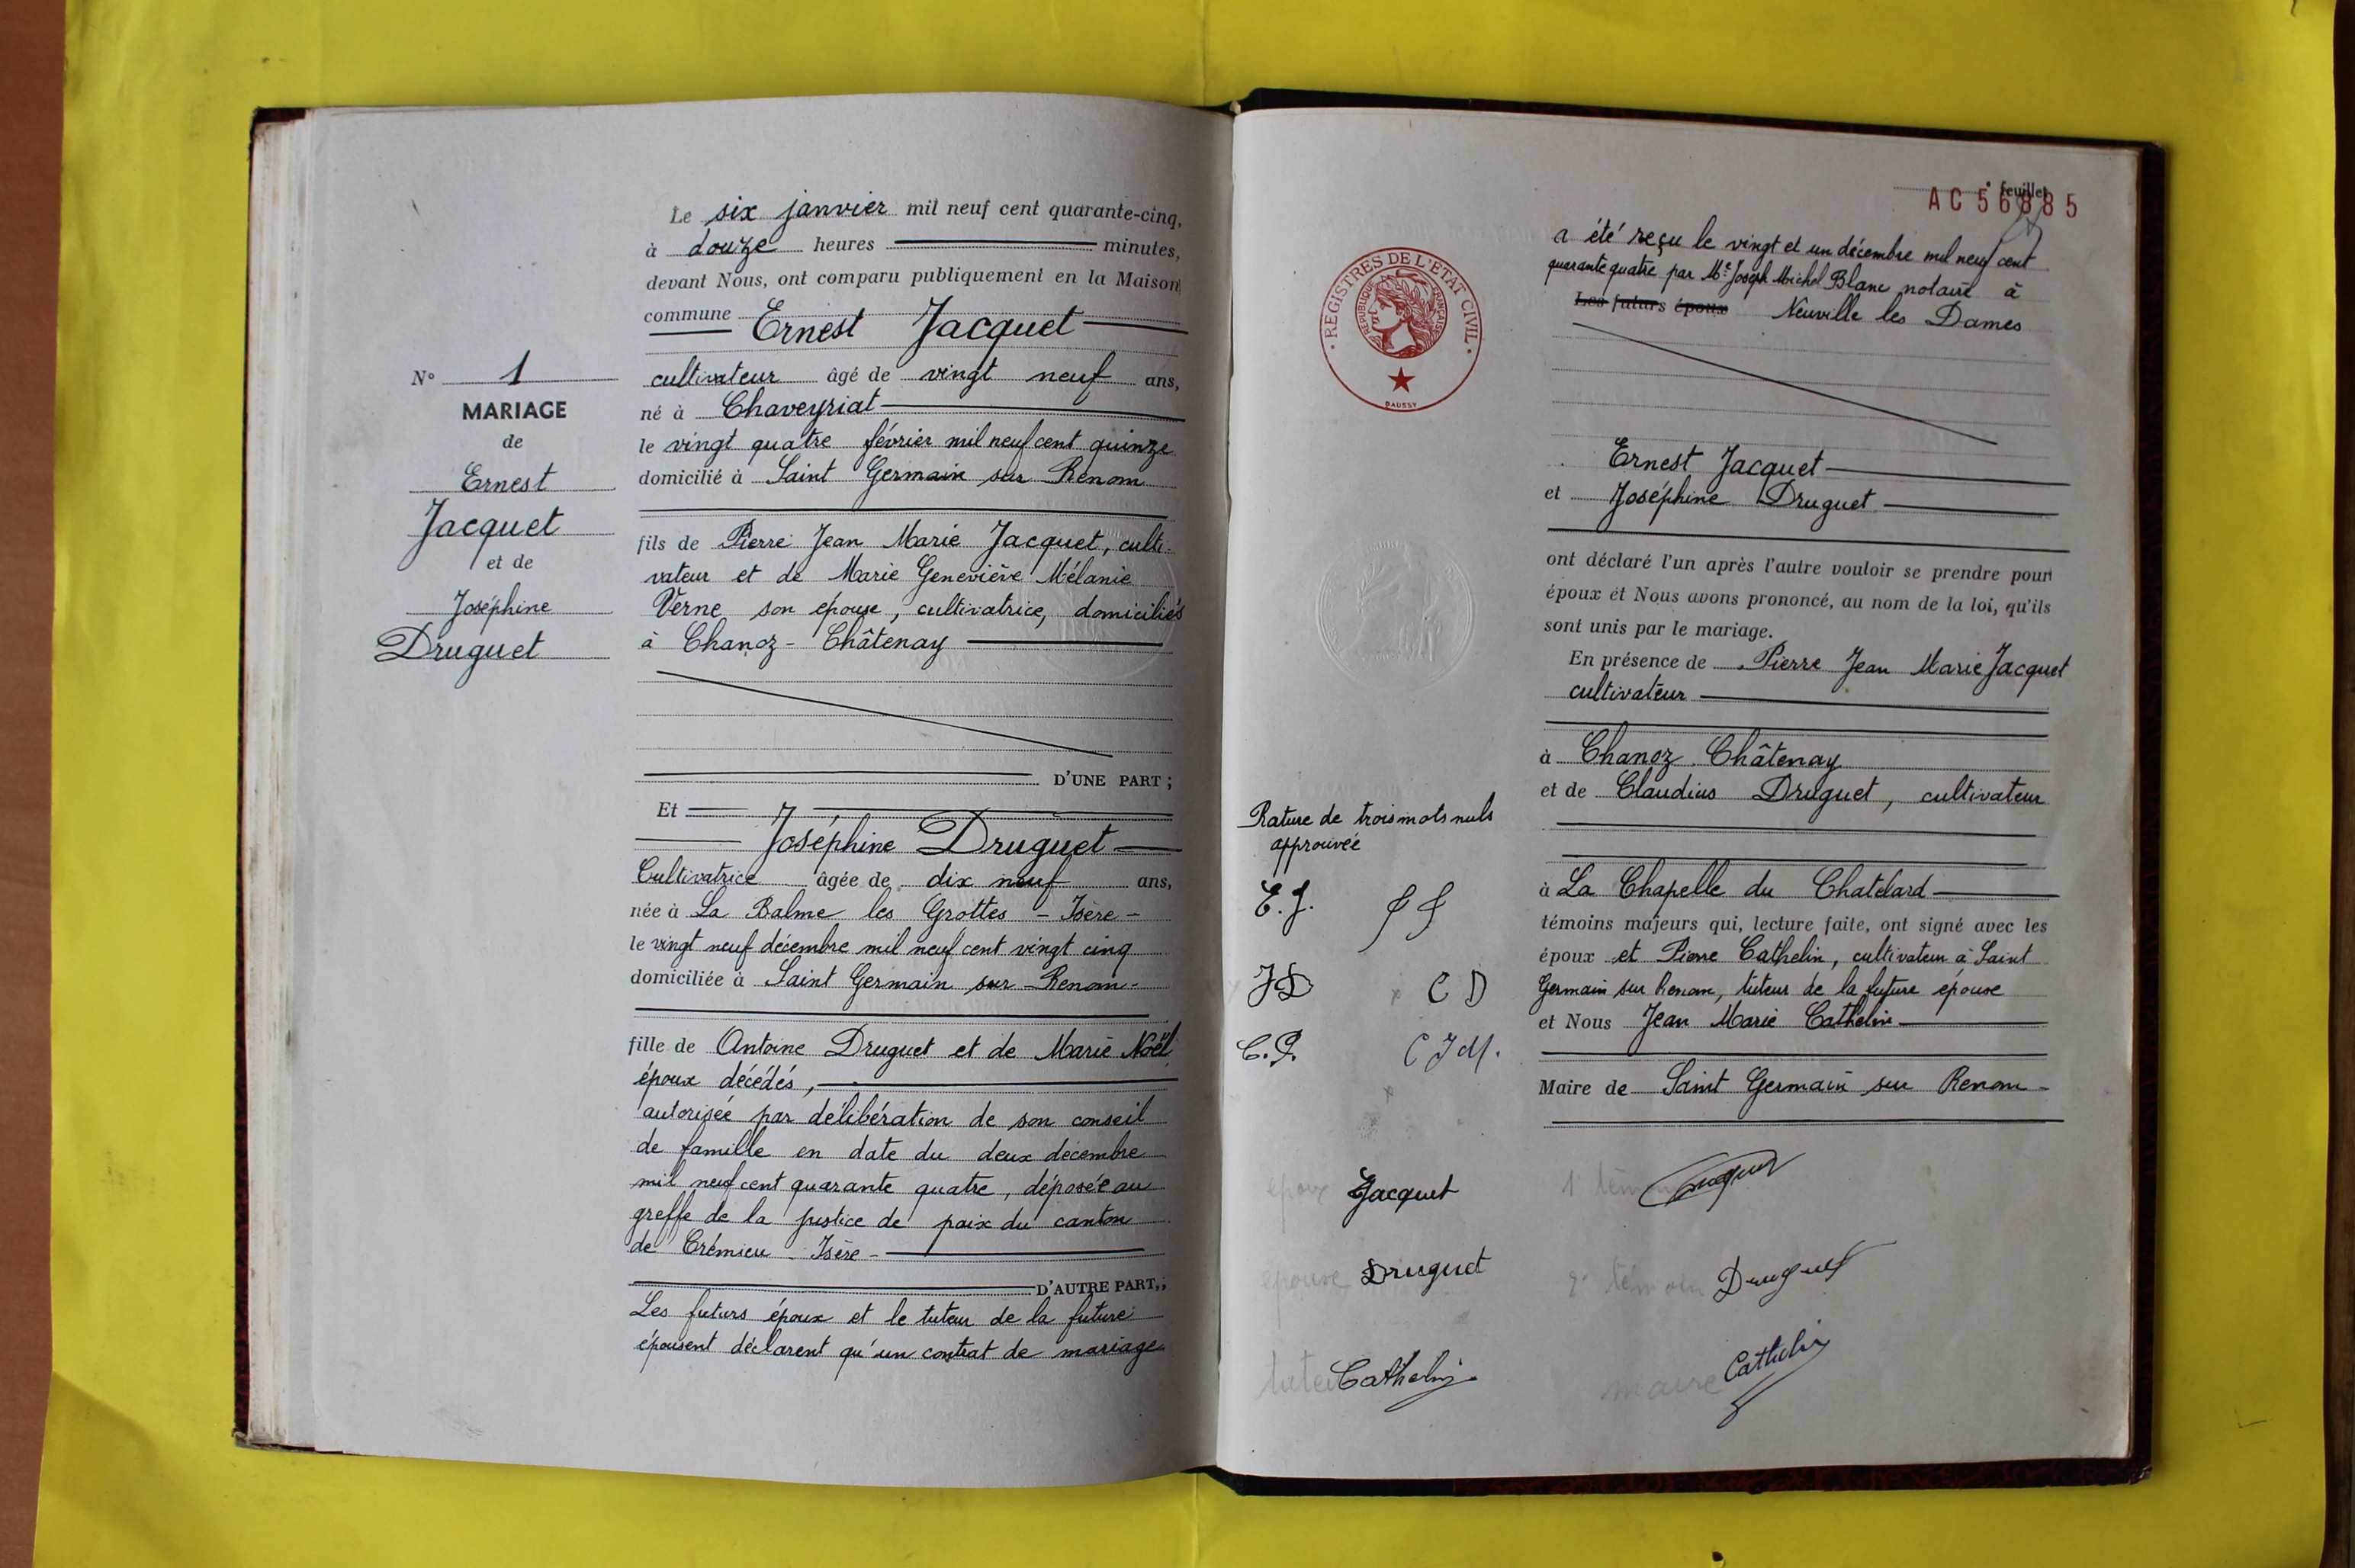 Le six janvier mil neuf cent quarante-cinq,
à douze heures minutes,
devant Nous, ont comparu publiquement en la Maison
commune
Ernest Jacquet
N° 1
MARIAGE
de
Ernest
Jacquet
et de
Joséphine
Druguet
cultivateur âgé de vingt neuf ans,
né à Chaveyriat
le vingt quatre février mil neuf cent quinze
domicilié à Saint Germain sur Renom
fils de Pierre Jean Marie Jacquet, culti-
vateur et de Marie Geneviève Mélanie
Verne son épouse, cultivatrice, domiciliés
à Chanoz-Châtenay
D'UNE PART ;
Et
Joséphine Druguet
Cultivatrice âgée de dix neuf ans,
née à La Balme les Grottes - Isère -
le vingt neuf décembre mil neuf cent vingt cinq
domiciliée à Saint Germain sur Renom-
fille de Antoine Druguet et de Marie Noël
époux décédés,
autorisée par délibération de son conseil
de famille en date du deux décembre
mil neuf cent quarante quatre, déposée au
greffe de la justice de paix du canton
de Crémieu - Isère -
D'AUTRE PART,;
Les futurs époux et le tuteur de la future
épousent déclarent qu'un contrat de mariage
feuillet
AC 56885
a été reçu le vingt et un décembre mil neuf cent
quarante quatre par Me Joseph Michel Blanc notaire à
Les futurs époux Neuville les Dames
REGISTRES DE L'ÉTAT CIVIL
RÉPUBLIQUE FRANÇAISE
DAUSSY
Ernest Jacquet
et Joséphine Druguet
ont déclaré l'un après l'autre vouloir se prendre pour
époux et Nous avons prononcé, au nom de la loi, qu'ils
sont unis par le mariage.
En présence de Pierre Jean Marie Jacquet
cultivateur
à Chanoz Châtenay
et de Claudius Druguet, cultivateur
à La Chapelle du Chatelard
témoins majeurs qui, lecture faite, ont signé avec les
époux et Pierre Cathelin, cultivateur à Saint
Germain sur Renom, tuteur de la future épouse
et Nous Jean Marie Cathelin
Maire de Saint Germain sur Renom -
Rature de trois mots nuls
approuvée
E.J.
JD C D
C.P. C J M.
epoux Jacquet 1 témoin
epouse Druguet 2e témoin Druguet
tuteur Cathelin maire Cathelin